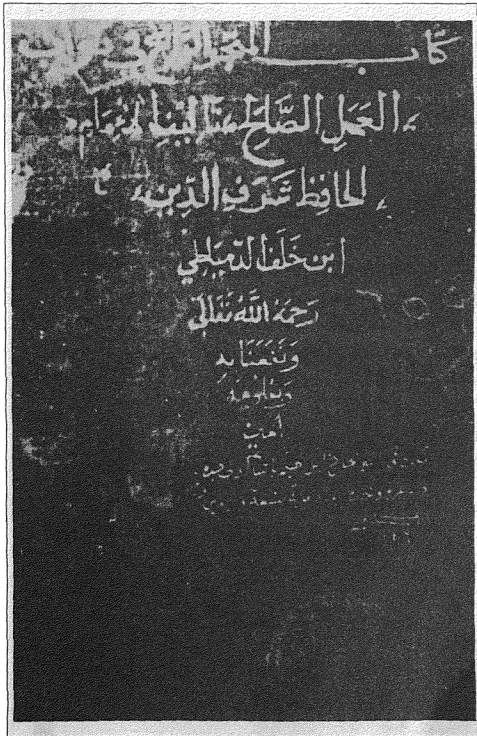 كتاب المتجر الرابح في ثواب
العَمَلِ الصَّالِحِ تأليف الإمام
الحافِظ شَرَفِ الدِّين
ابن خَلَف الدمياطي
رَحِمَهُ اللَّهُ تَعَالَى
وَنَفَعَنَا بِهِ
وَبِعُلُومِهِ
أمين